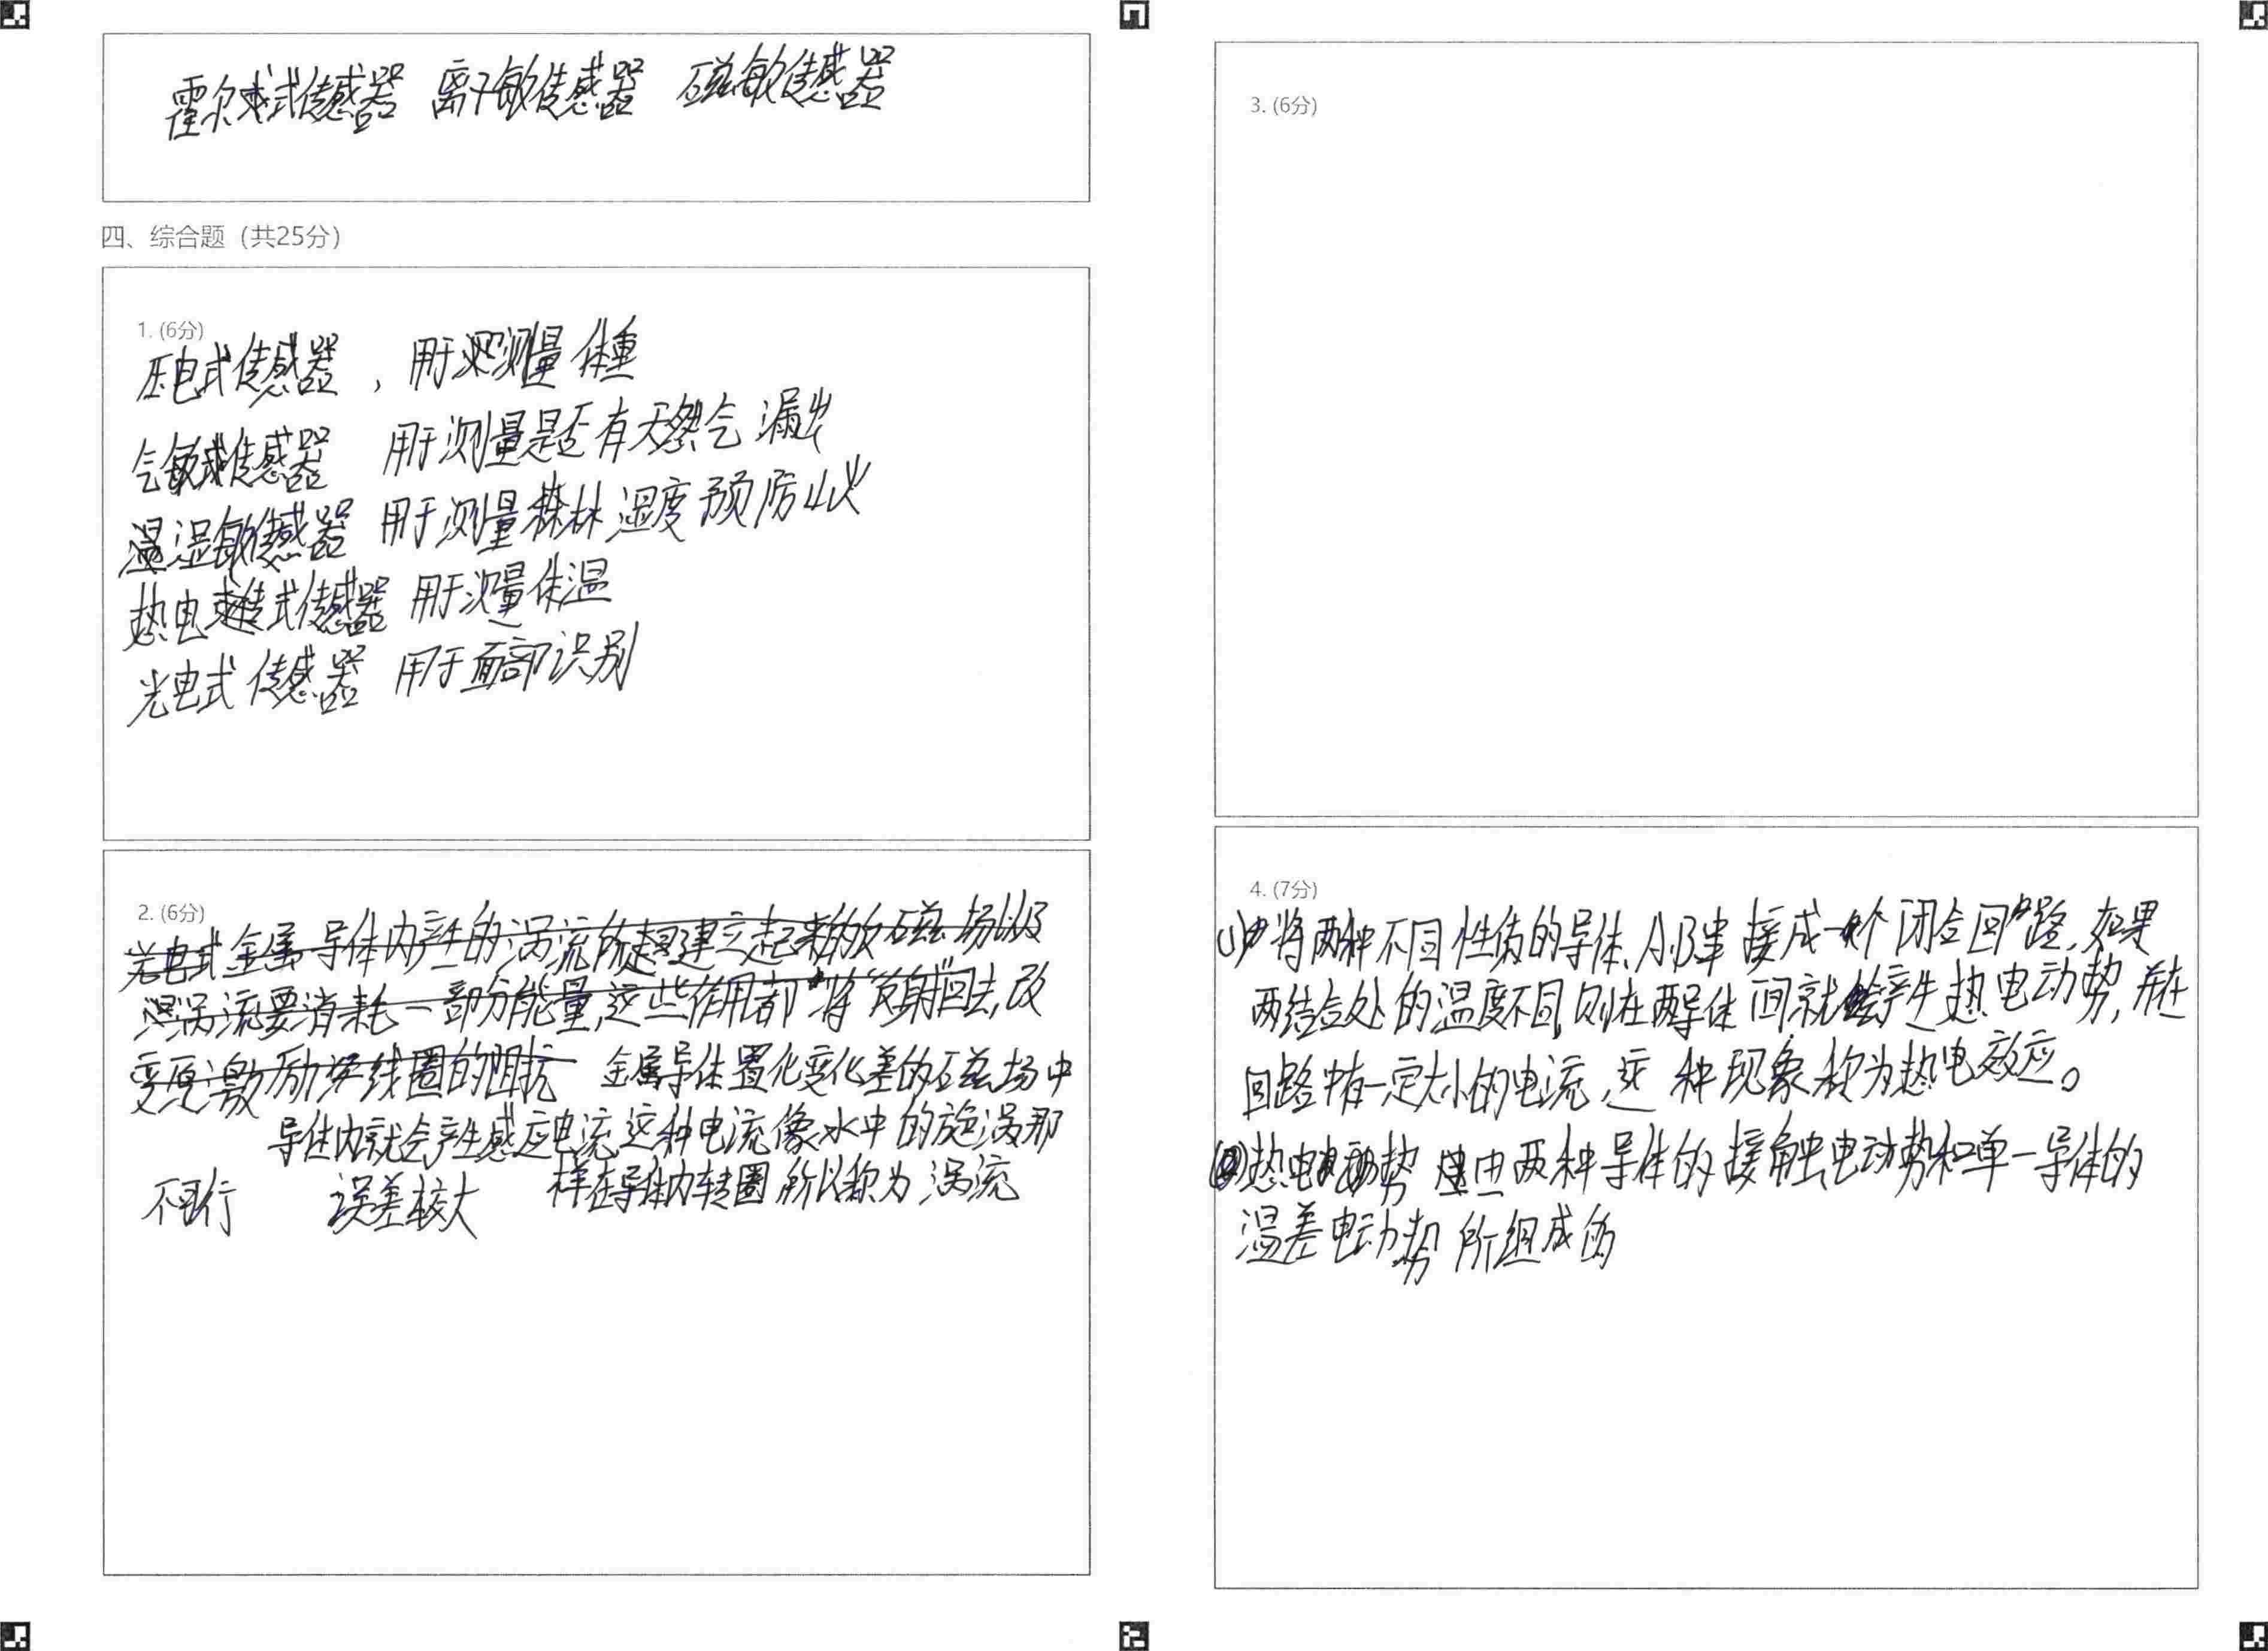 霍尔式传感器 离子敏传感器 磁敏传感器
四、综合题（共25分）
1. (6分)
压电式传感器，用于测量体重
气敏式传感器 用于测量是否有天然气漏出
湿敏传感器 用于测量森林湿度预防山火
热电式传感器 用于测量体温
光电式传感器 用于面部识别
2. (6分)
光电式金属导体内产生的涡流所建立起来的反磁场以及
涡流要消耗一部分能量,这些作用都将"反射"回去,改
变原激励线圈的阻抗 金属导体置化变化差的磁场中
导体内就会产生感应电流,这种电流像水中的旋涡那
样在导体内转圈 所以称为涡流
不可行 误差较大
3. (6分)
4. (7分)
(1)将两种不同性质的导体A,B串接成一个闭合回路,如果
两结点处的温度不同,则在两导体间就会产生热电动势,并在
回路中有一定大小的电流,这种现象称为热电效应。
(2)热电动势是由两种导体的接触电动势和单一导体的
温差电动势所组成的